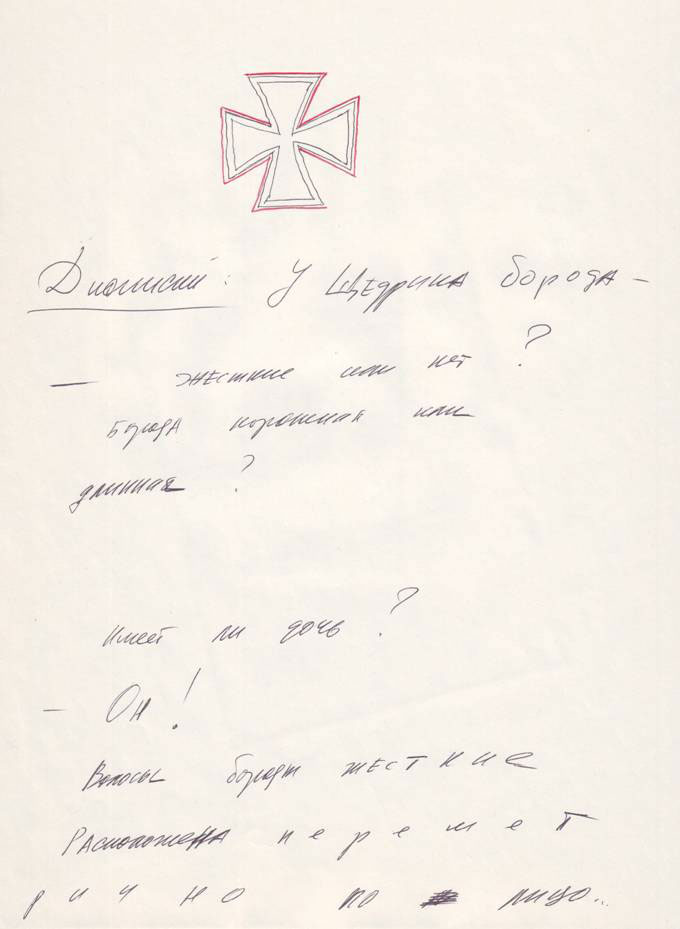 Дионисий: У Щедрина борода –
— жесткие или нет?
Борода корошкая или
длинная?
Имеет ли дочь?
– Он!
Волосы бороды жесткие
Расположена перемет
рично по лицо...